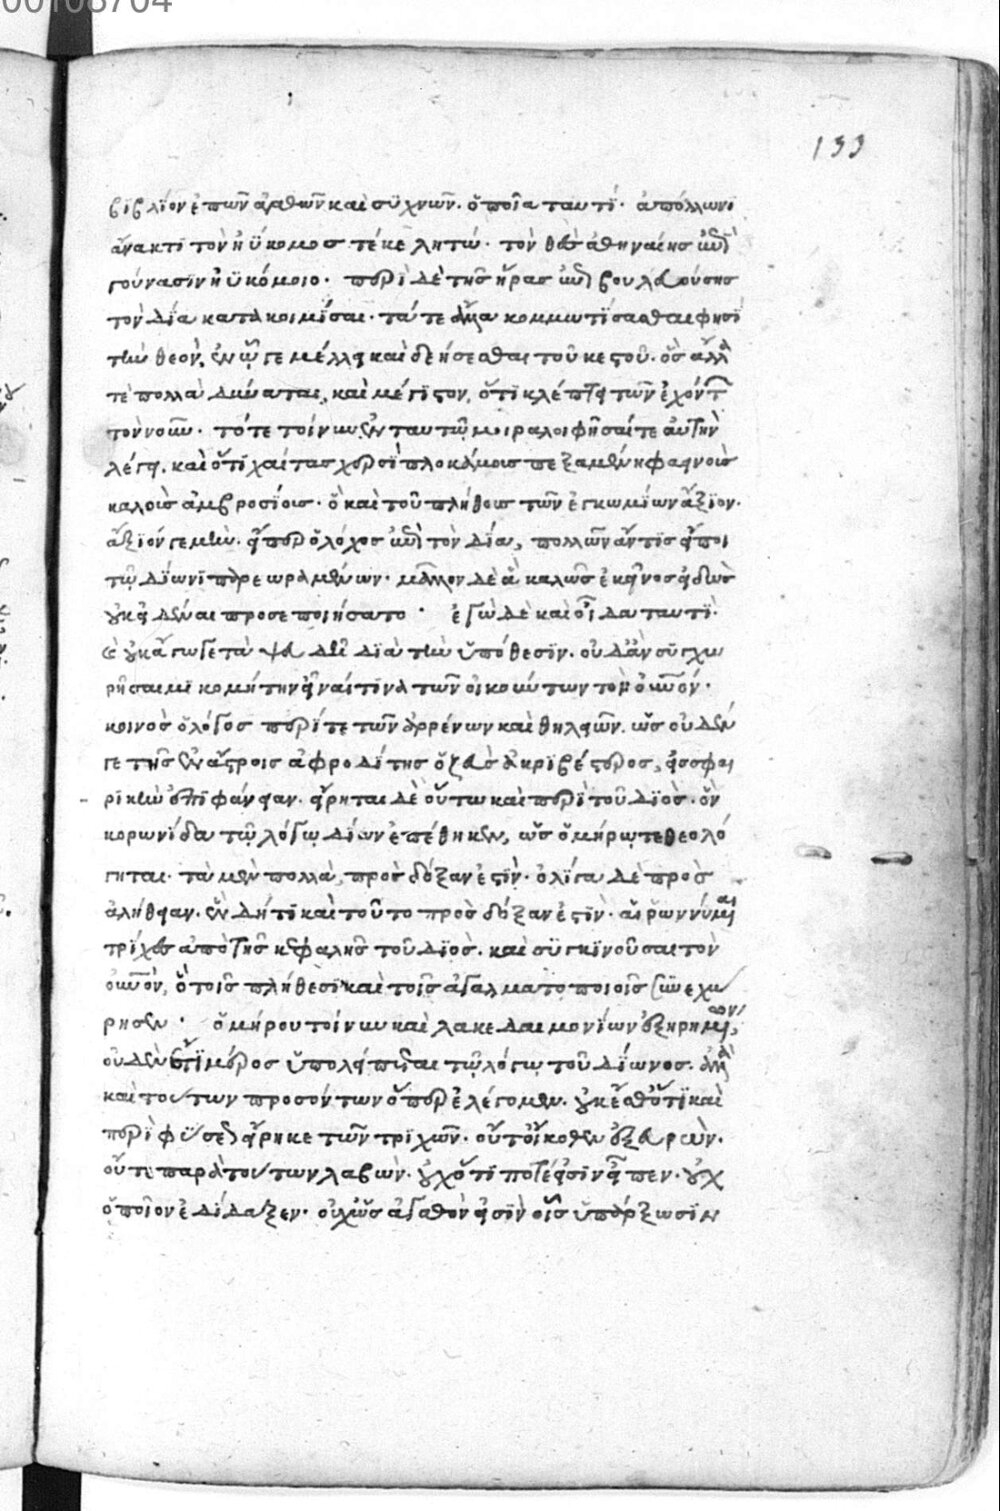 133
βιβλίον ἐπῶν ἀγαθῶν καὶ συχνῶν. ὁποῖα ταυτί. ἀπόλλωνι
ἄνακτι τὸν ἠΰκομος τέκε λητώ. τὸν θὲς ἀθηναίης ἐπὶ
γούνασιν ἠϋκόμοιο. περὶ δὲ τῆς ἥρας ἐπιβουλευούσης
τὸν δία κατακοιμίσαι. τά τε ἄλλα κομμωτίσασθαι φησὶ
τὴν θεὸν, ἐν ᾧ γε μέλλει καὶ δεήσεσθαι τοῦ κεστοῦ. ὃς ἄλλα
τὲ πολλὰ δύναται, καὶ μέγιστον, ὅτι κλέπτει τῶν ἐχόντων
τὸν νοῦν. τότε τοίνυν ἐν ταυτῷ μοίρα λοιφῆσαί τε αὐτὴν
λέγει. καὶ ὅτι χαίτας χερσὶ πλοκάμοις πεξαμένη φαεινοὺς
καλοὺς ἀμβροσίοις. ὃ καὶ τοῦ πλήθους τῶν ἐγκωμίων ἄξιον.
ἄξιόν γε μὴν. εἴπερ ὁ λόχος ἐπὶ τὸν δία, πολλῶν ἄν τις εἴποι
τῷ δίωνι παρεωραμένων. μᾶλλον δὲ ἃ καλῶς ἐκεῖνος εἰδὼς
οὐκ εἰδέναι προσεποιήσατο. ἐγὼ δὲ καὶ οἶδα ταυτὶ.
καὶ οὐκ ἄγω γε τὰ ψευδῆ διὰ τὴν ὑπόθεσιν. οὐδ' ἂν συγχω
ρήσαιμι κομήτην εἶναί τινα τῶν οἰκούντων τὸν οὐρανόν.
κοινὸς ὁ λόγος περί τε τῶν ἀρρένων καὶ θηλειῶν. ὡς οὐδέν
γε τῆς ἐν ἄστροις ἀφροδίτης ὁ ζεὺς ἀκριβέστερος, εἰς σφαι
ρικὴν ἐπιφάνειαν. εἴρηται δὲ οὕτω καὶ περὶ τοῦ διὸς. ὃν
κορωνίδα τῷ λόγῳ δίων ἐπέθηκεν, ὡς ὁμήρῳ τεθεολό
γηται. τὰ μὲν πολλὰ πρὸς δόξαν ἐστὶν. ὀλίγα δὲ πρὸς
ἀλήθειαν. ἓν δή τι καὶ τοῦτο πρὸς δόξαν ἐστὶν. αἱ ῥωννύμεναι
τρίχες ἀπὸ τῆς κεφαλῆς τοῦ διὸς. καὶ συγκινοῦσαι τὸν
οὐρανὸν, ὃ τοῖς πλήθεσι καὶ τοῖς ἀγαλματοποιοῖς συνεχώ
ρησεν. ὁμήρου τοίνυν καὶ λακεδαιμονίων ἐξῃρημένων,
οὐδὲν ἔτι μέρος ὑπολείπεται τῷ λόγῳ τοῦ δίωνος. ἀλλὰ
καὶ τούτων προσόντων ὅπερ ἐλέγομεν. οὐκ ἔσθ' ὅτι καὶ
περὶ φύσεως εἴρηκε τῶν τριχῶν. οὔτ' οἴκοθεν ἐξευρὼν.
οὔτε παρὰ τούτων λαβὼν. οὐχ ὅτι ποτέ εἰσιν εἶπεν. οὐχ
ὁποῖον ἐδίδαξεν. οὐχ ὡς ἀγαθὸν εἰσὶν οἷς ὑπάρξωσιν